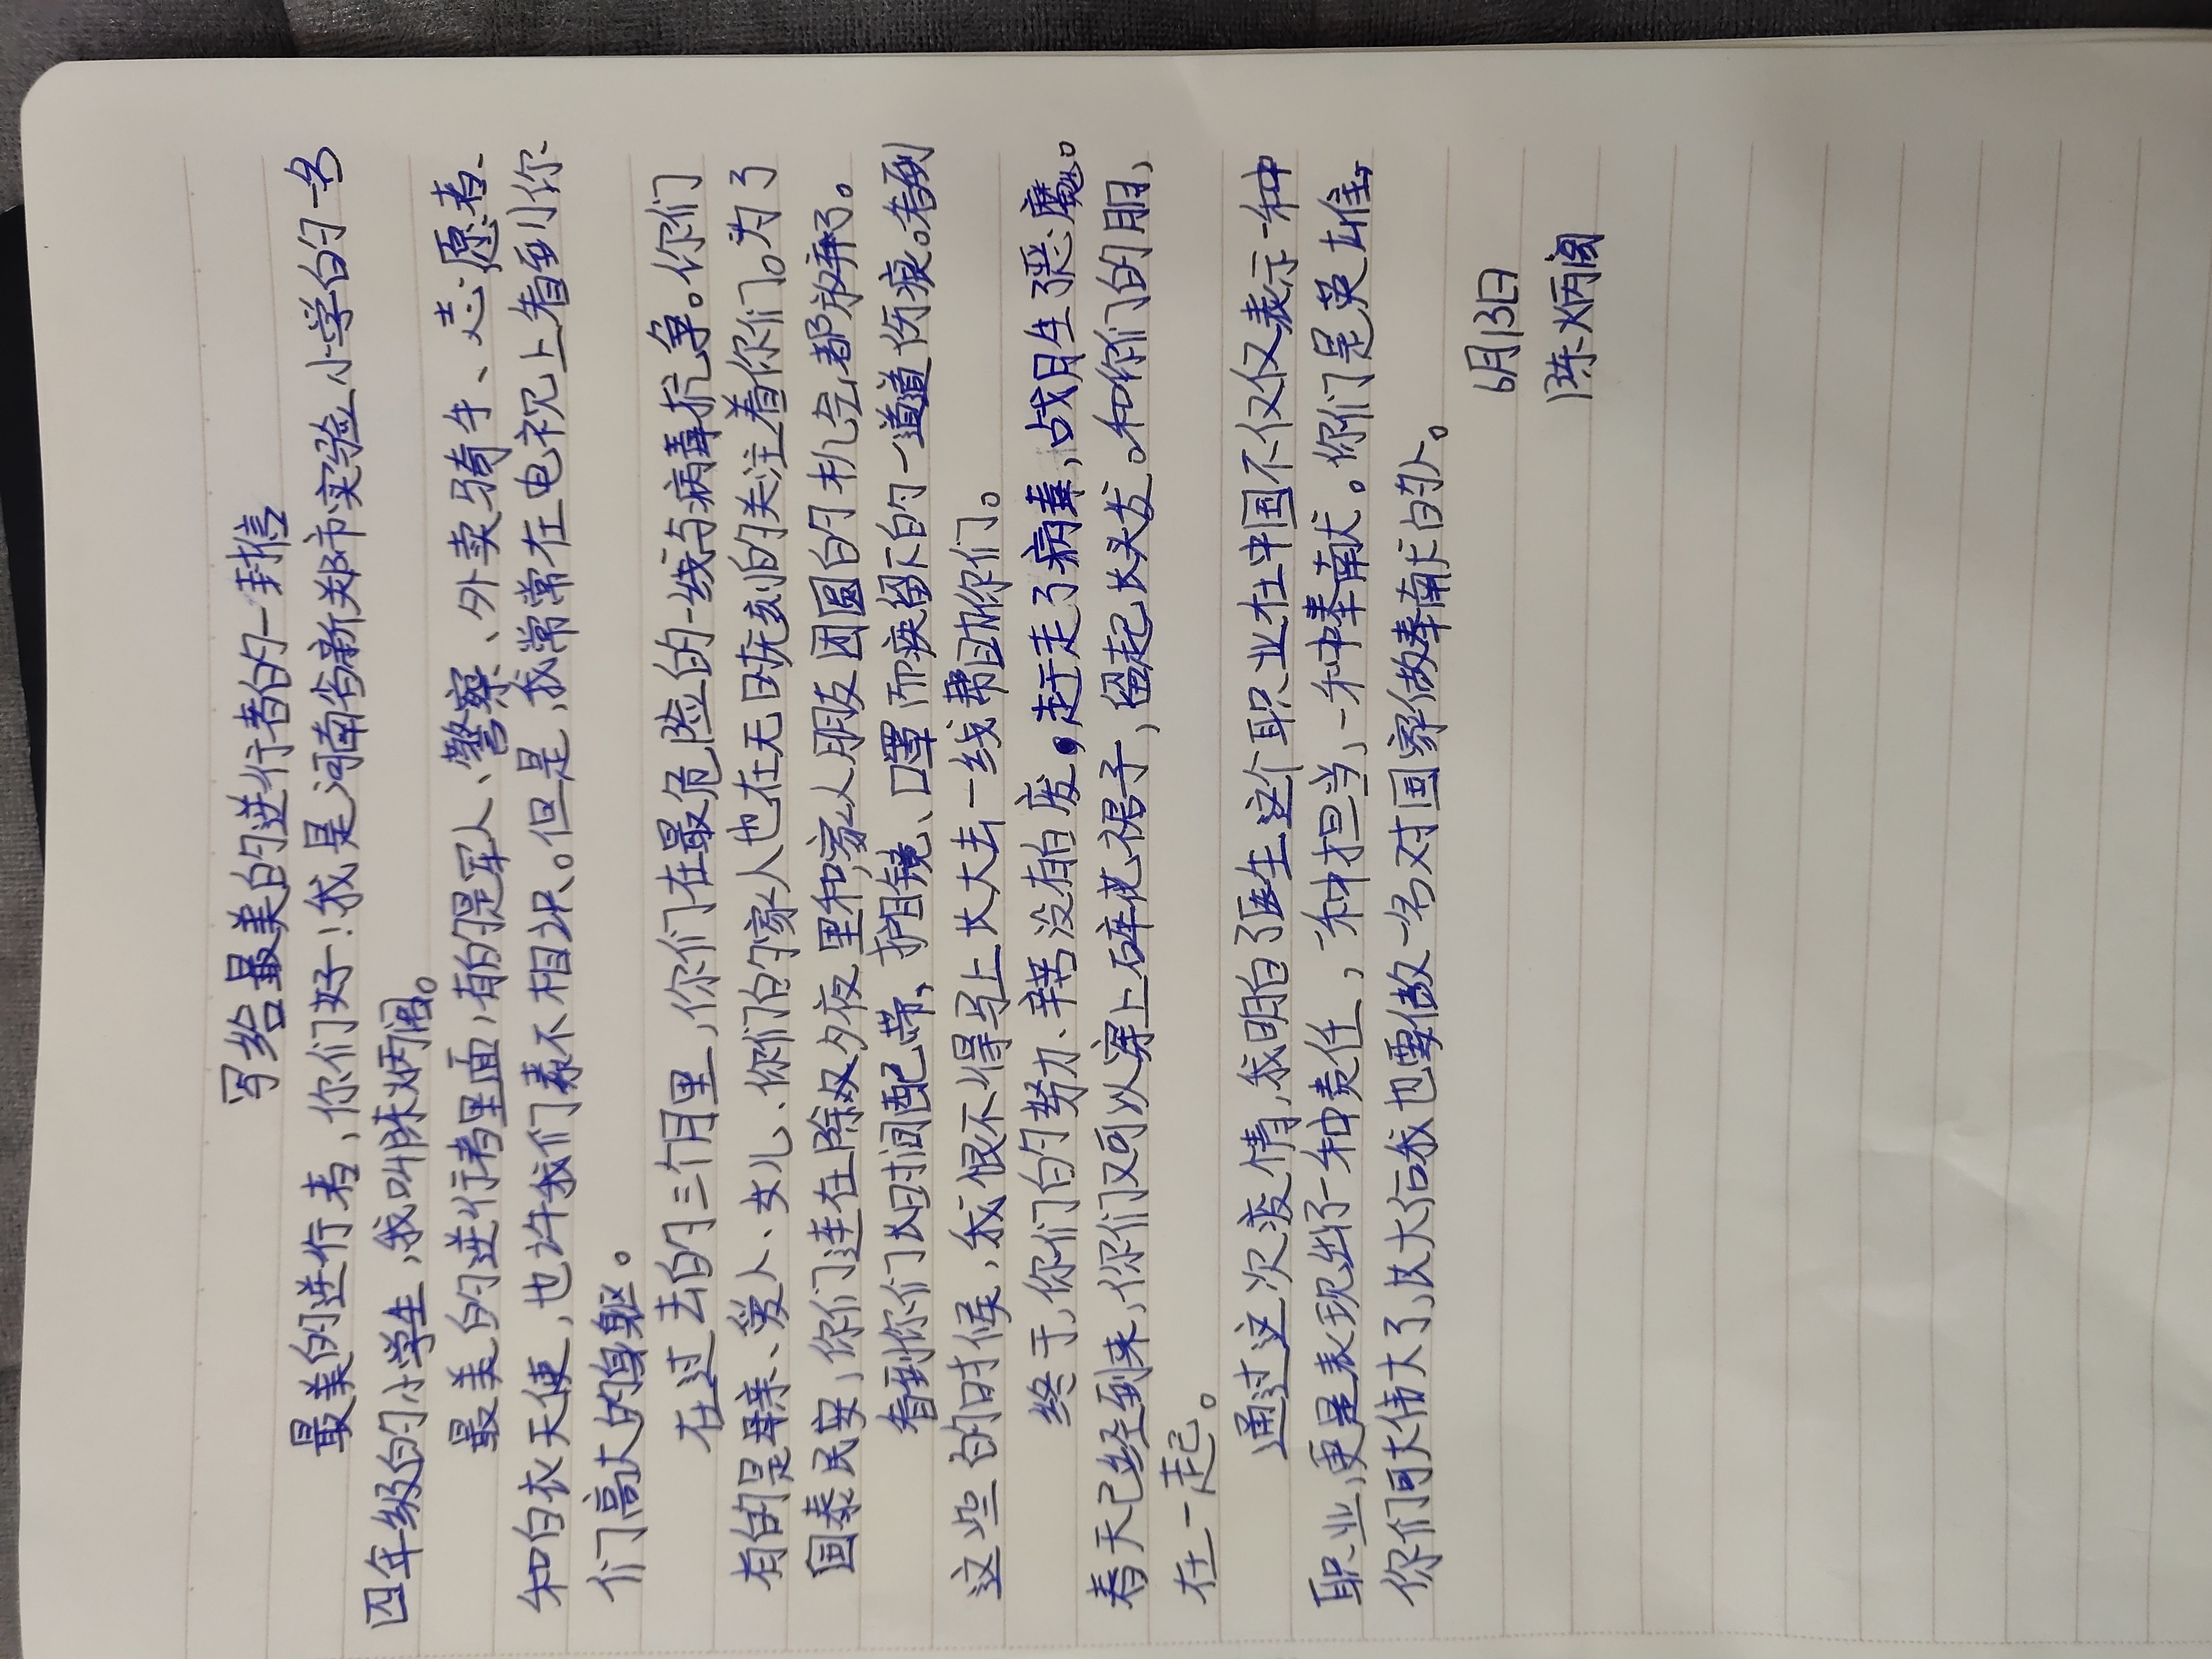 写给最美的逆行者的一封信
最美的逆行者,你们好!我是河南省新郑市实验小学的一名
四年级的小学生,我叫陈炳阁。
最美的逆行者里面,有的是军人、警察、外卖骑手、志愿者、
和白衣天使,也许我们素不相识。但是,我常常在电视上看到你
们高大的身躯。
在过去的三个月里,你们在最危险的一线与病毒抗争。你们
有的是母亲、爱人、女儿、你们的家人也在无时无刻的关注着你们。为了
国泰民安,你们连在除夕夜里和家人朋友团圆的机会都放弃了。
看到你们长时间配带,护目镜、口罩而疾留下的一道道伤痕。看到
这些的时候,我恨不得马上长大去一线帮助你们。
终于,你们的努力、辛苦没有白废,赶走了病毒,战胜了恶魔。
春天已经到来,你们又可以穿上碎花裙子,留起长头发。和你们的朋友
在一起。
通过这次疫情,我明白了医生这个职业在中国不仅仅表示一种
职业,更是表现出了一种责任,一种担当,一种奉献。你们是英雄,
你们可太伟大了,长大后我也要做一名对国家做奉献的人。
6月13日
陈炳阁